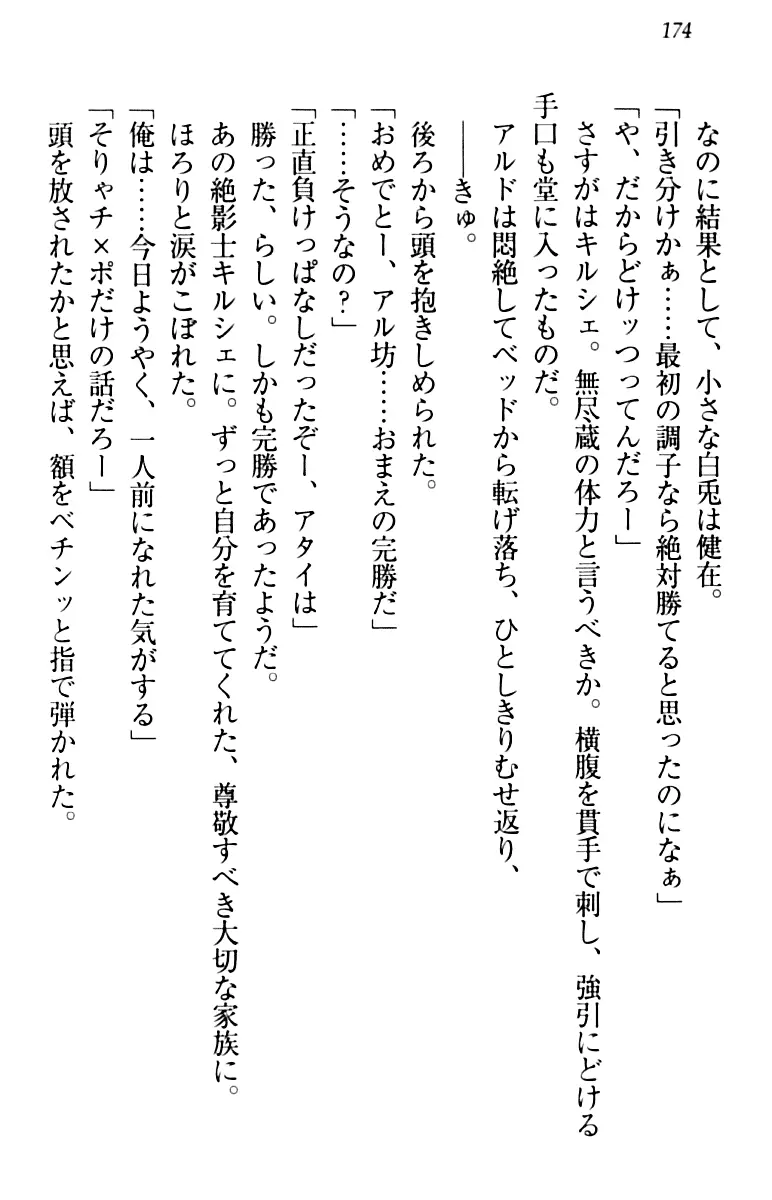 174
なのに結果として、小さな白兎は健在。
「引き分けかぁ……最初の調子なら絶対勝てると思ったのになぁ」
「や、だからどけッつってんだろー」
さすがはキルシェ。無尽蔵の体力と言うべきか。横腹を貫手で刺し、強引にどける
手口も堂に入ったものだ。
アルドは悶絶してベッドから転げ落ち、ひとしきりむせ返り、
――きゅ。
後ろから頭を抱きしめられた。
「おめでとー、アル坊……おまえの完勝だ」
「……そうなの？」
「正直負けっぱなしだったぞー、アタイは」
勝った、らしい。しかも完勝であったようだ。
あの絶影士キルシェに。ずっと自分を育ててくれた、尊敬すべき大切な家族に。
ほろりと涙がこぼれた。
「俺は……今日ようやく、一人前になれた気がする」
「そりゃチ×ポだけの話だろー」
頭を放されたかと思えば、額をベチンッと指で弾かれた。